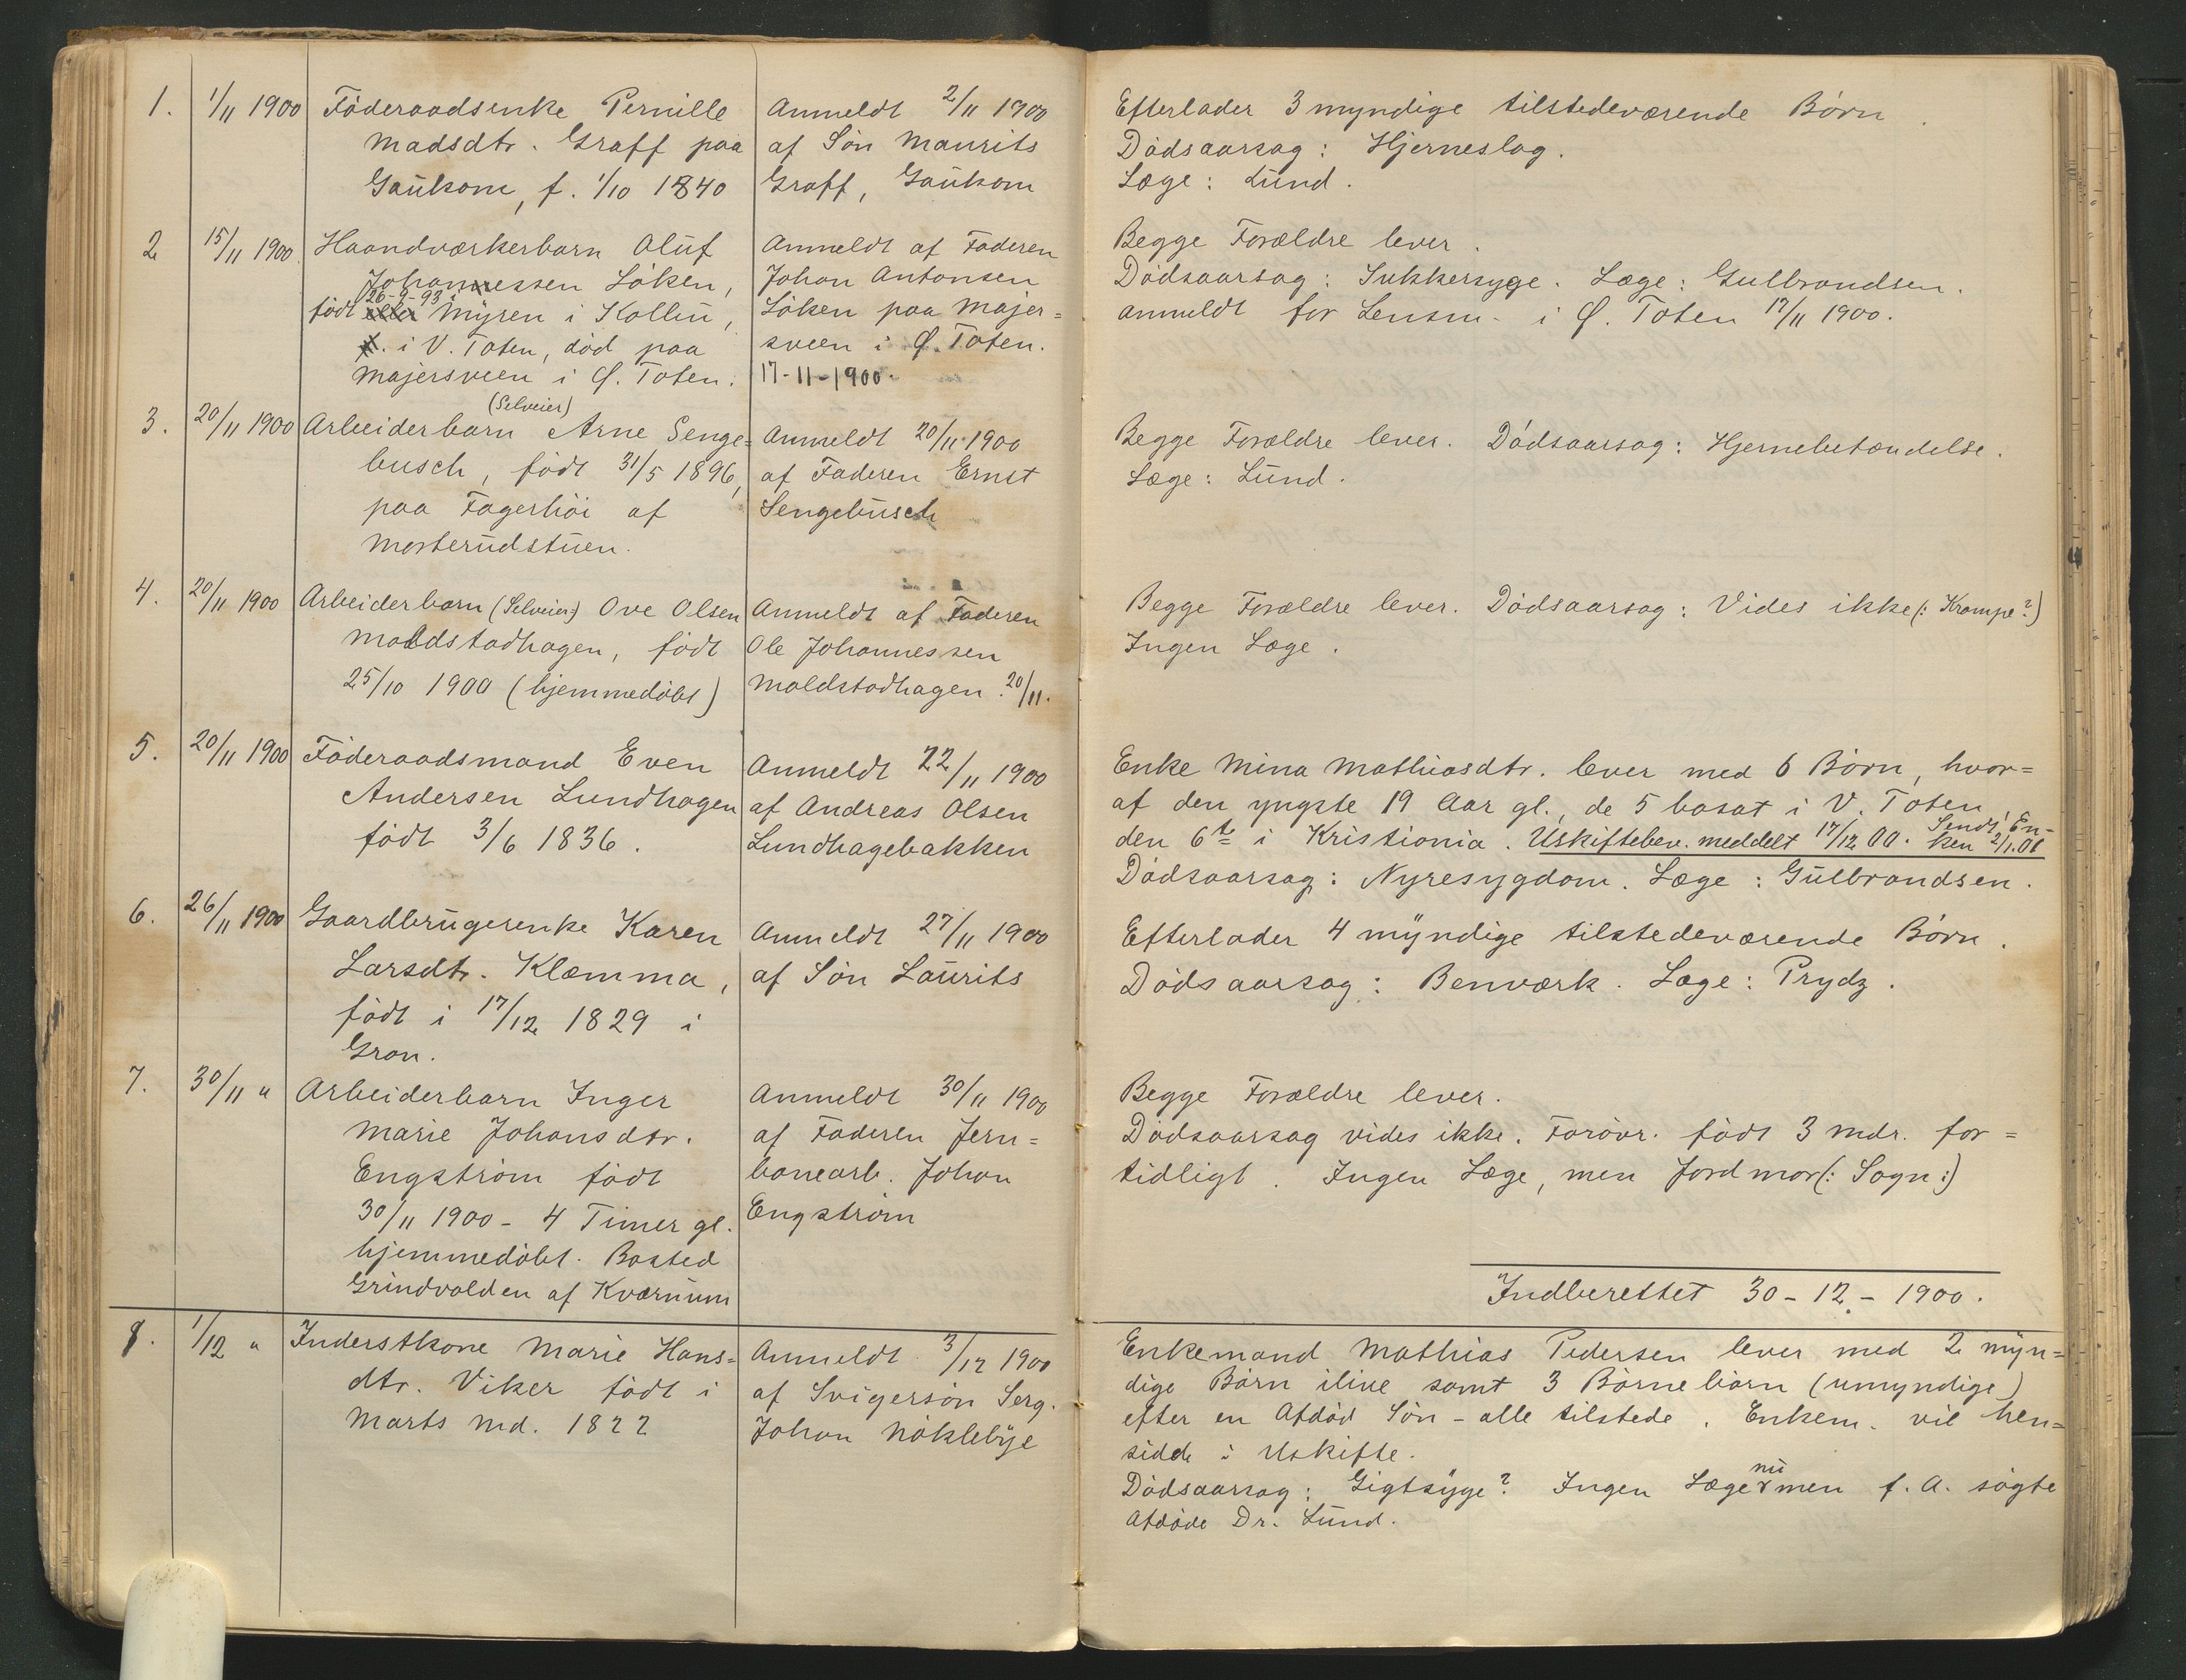 1. 1/11 1900 Föderaadsenke Pernille
Madsdtr. Graff paa
Gaukom, f. 1/10 1840
Anmeldt 2/11 1900
af Sön Maurits
Graff, Gaukom
Efterlader 3 myndige tilstedeværende Börn.
Dödsaarsag: Hjerneslag.
Læge: Lund.
2 15/11 1900. Haandværkerbarn Oluf
Johannessen Löken,
26-9-93 i
født Myren i Kollu,
i V. Toten, död paa
Majersveen i Ø. Toten.
Anmeldt af Faderen
Johan Antonsen
Löken paa Majer=
sveen i Ø. Toten.
17-11-1900.
Begge Forældre lever.
Dödsaarsag: Sukkersyge. Læge: Gulbrandsen.
anmeldt for Lensm. i Ø. Toten 17/11 1900.
(Selveier)
3. 20/11 1900 Arbeiderbarn Arne Senge=
busch, födt 31/5 1896,
paa Fagerhöi af
Morterudstuen.
Anmeldt 20/11 1900
af Faderen Ernst
Sengebusch
Begge Forældre lever. Dödsaarsag: Hjernebetændelse.
Læge: Lund.
4. 20/11 1900 Arbeiderbarn (Selveier) Ove Olsen
Maldstadhagen, födt
25/10 1900 (hjemmedöbt)
Anmeldt af Faderen
Ole Johannessen
Maldstadhagen. 20/11.
Begge Forældre lever. Dödsaarsag: Vides ikke (: Krampe?)
Ingen Læge.
5. 20/11 1900 Föderaadsmand Even
Andersen Lundhagen
födt 3/6 1836.
Anmeldt 22/11 1900
af Andreas Olsen
Lundhagebakken
Enke Mina Mathiasdtr. lever med 6 Börn, hvor=
af den yngste 19 Aar gl., de 5 bosat i V. Toten,
den 6te i Kristiania. Uskiftebev. meddelt 17/12 00. Sendt En-
ken 2/1.01
Dödsaarsag: Nyresygdom. Læge: Gulbrandsen.
6. 26/11 1900 Gaardbrugerenke Karen
Larsdtr. Klæmma,
födt i 17/12 1829 i
Gran.
Anmeldt 27/11 1900
af Sön Laurits
Efterlader 4 myndige tilstedeværende Börn.
Dödsaarsag: Benværk. Læge: Prydz.
7. 30/11 " Arbeiderbarn Inger
Marie Johansdtr.
Engström födt
30/11 1900 - 4 Timer gl.
hjemmedöbt. Bosted
Grindvolden af Kværnum
Anmeldt 30/11 1900
af Faderen Jern=
banearb. Johan
Engström
Begge Forældre lever.
Dödsaarsag vides ikke. Forövr. födt 3 mdr. for=
tidligt. Ingen Læge, men Jordmor (: Sogn :)
Indberettet 30-12-1900.
8. 1/12 " Inderstkone Marie Hans=
dtr. Viker födt i
Marts Md. 1822
Anmeldt 3/12 1900
af Svigersön Serg.
Johan Nöklebye
Enkemand Mathias Pedersen lever med 2 myn=
dige Börn ilive samt 3 Börnebörn (umyndige)
efter en Afdöd Sön - alle tilstede. Enkem. vil hen=
sidde i Uskifte.
Dödsaarsag: Gigtsyge? Ingen Læge nu men f. A. sögte
Afdöde Dr. Lund.